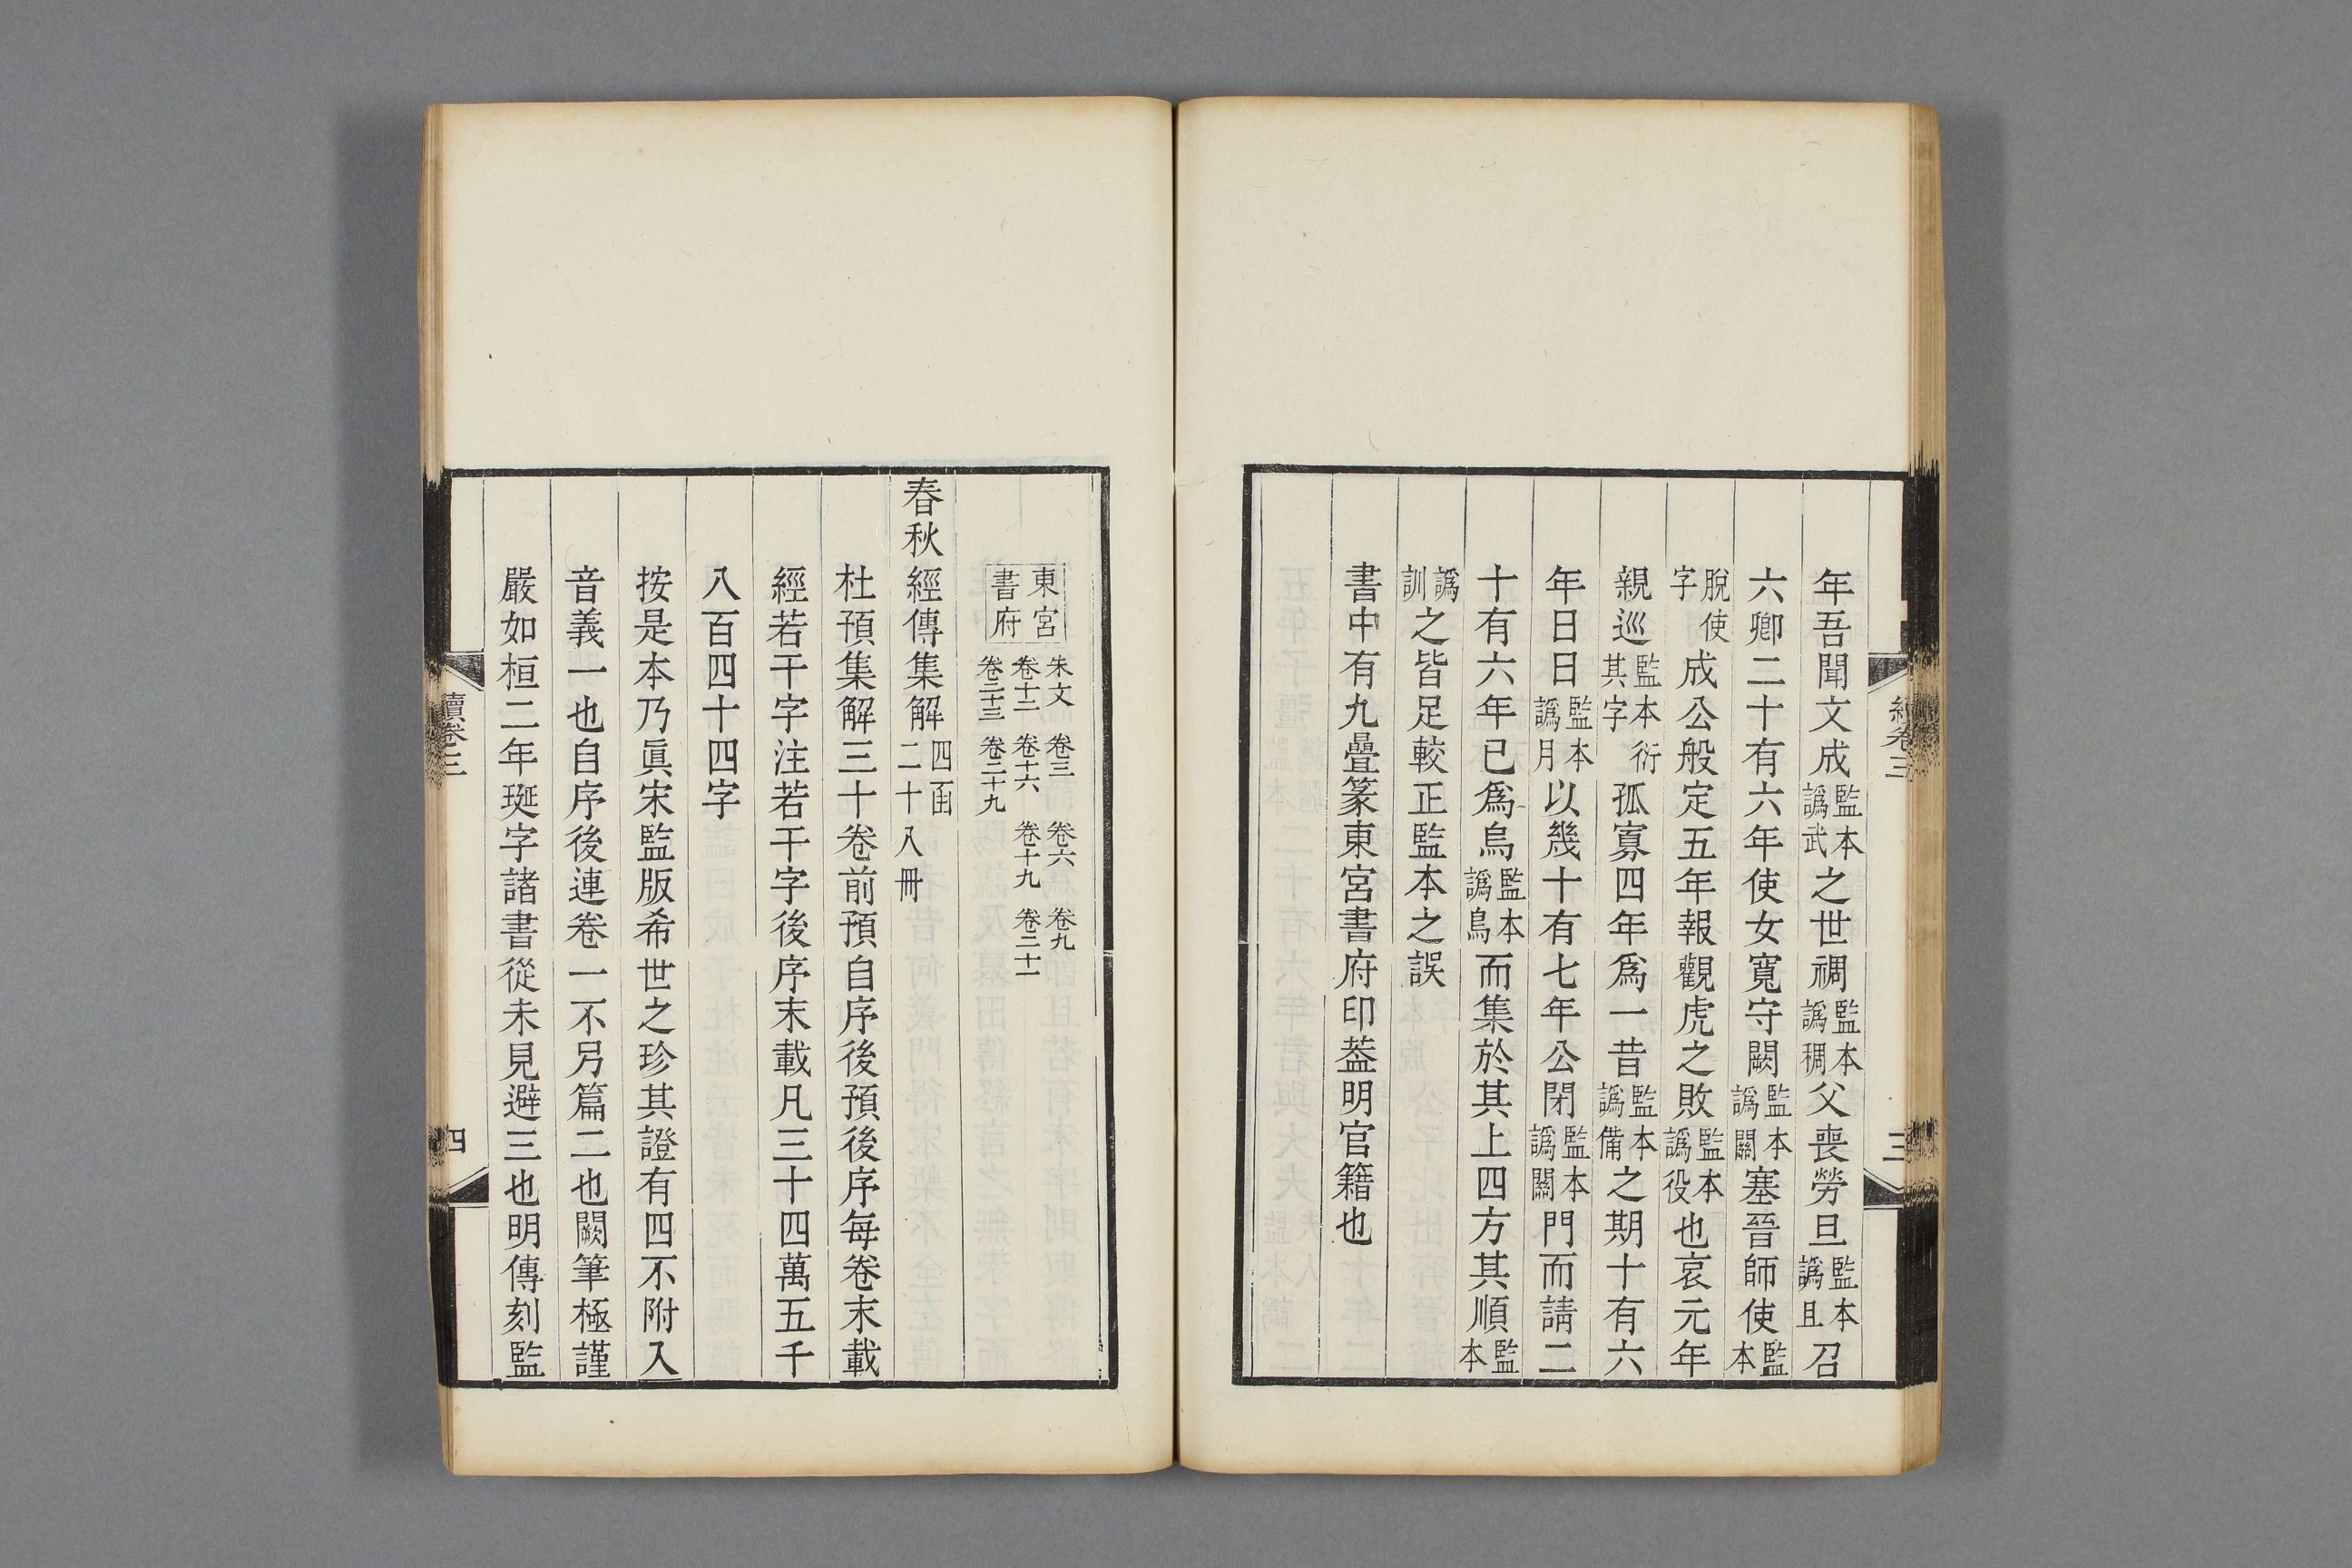 年吾聞文成監本譌武之世禂監本譌稠父喪勞旦監本譌且召
六卿二十有六年使女寬守闕監本譌關塞晉師使監本
脫使字成公般定五年報觀虎之敗監本譌役也哀元年
親巡監本衍其字孤寡四年爲一昔監本譌備之期十有六
年日日監本譌月以幾十有七年公閉監本譌關門而請二
十有六年已爲烏監本譌鳥而集於其上四方其順監本
譌訓之皆足較正監本之誤
書中有九疊篆東宮書府印葢明官籍也
續卷三
三
東宮書府
朱文 卷三 卷六 卷九
卷十二 卷十六 卷十九 卷二十一
卷二十三 卷二十九
春秋經傳集解四函二十八冊
杜預集解三十卷前預自序後預後序每卷末載
經若干字注若干字後序末載凡三十四萬五千
八百四十四字
按是本乃眞宋監版希世之珍其證有四不附入
音義一也自序後連卷一不另篇二也闕筆極謹
嚴如桓二年珽字諸書從未見避三也明傳刻監
續卷三
四